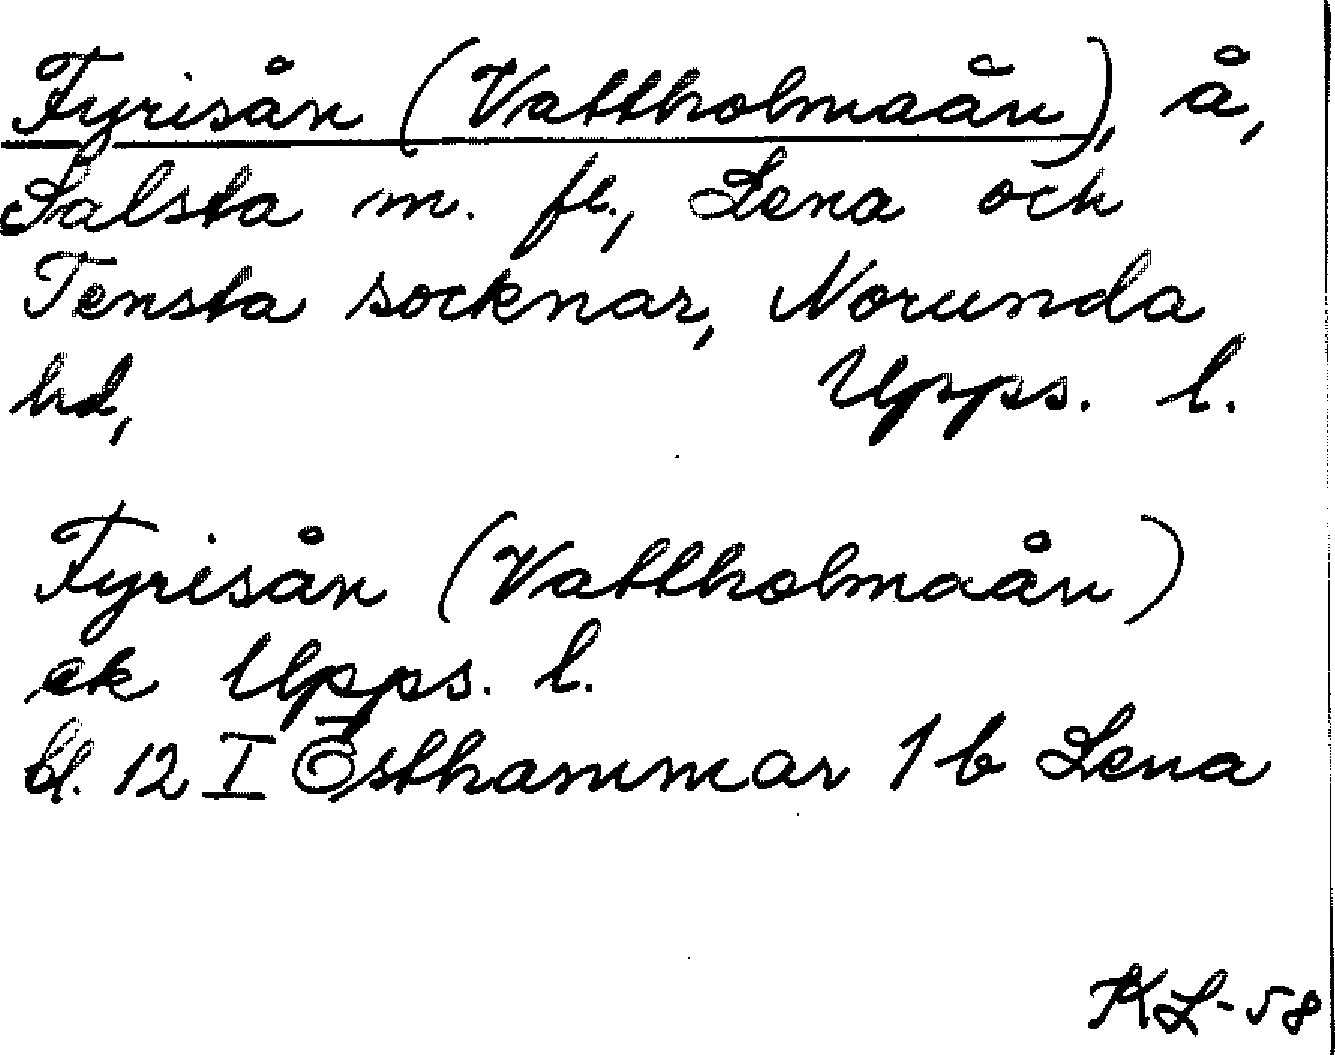 Fyrisån (Vattholmaån), å,
Salsta m. fl., Lena och
Tensta socknar, Norunda
hd, Upps. l.
Fyrisån (Vattholmaån)
ek Upps. l.
bl. 12 I Östhammar 1 b Lena
KL-58